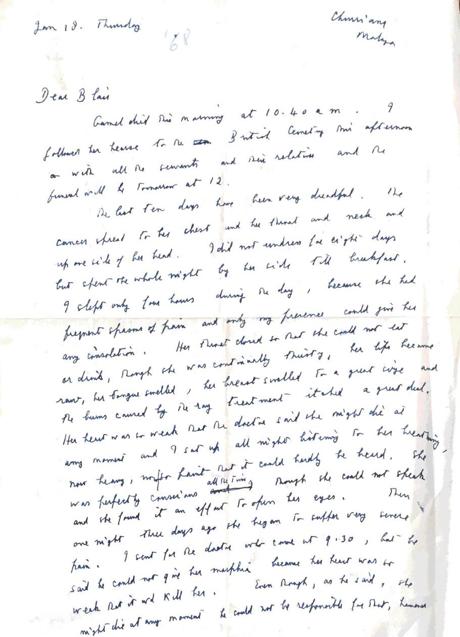 Jan 18. Thursday
'68
Churriana
Malaga
Dear Blair
Gamel died this morning at 10.40 a.m. I
followed her hearse to the British Cemetery this afternoon
with all the servants and their relatives and the
funeral will be tomorrow at 12.
The last ten days have been very dreadful. The
cancer spread to her chest and her throat and neck and
up one side of her head. I did not undress for eight days
but spent the whole night by her side till breakfast.
I slept only four hours during the day, because she had
frequent spasms of pain and only my presence could give her
any consolation. Her throat closed so that she could not eat
or drink, though she was continually thirsty, her lips became
raw, her tongue swelled, her breast swelled to a great size and
the burns caused by the ray treatment itched a great deal.
Her heart was so weak that the doctor said she might die at
any moment and I sat up all night listening to her breathing,
now heavy, now so faint that it could hardly be heard. She
was perfectly conscious all the time though she could not speak
and she found it an effort to open her eyes. Then
one night three days ago she began to suffer very severe
pain. I sent for the doctor who came at 9.30, but he
said he could not give her morphia because her heart was so
weak that it wd kill her. Even though, as he said, she
might die at any moment he could not be responsible for that,